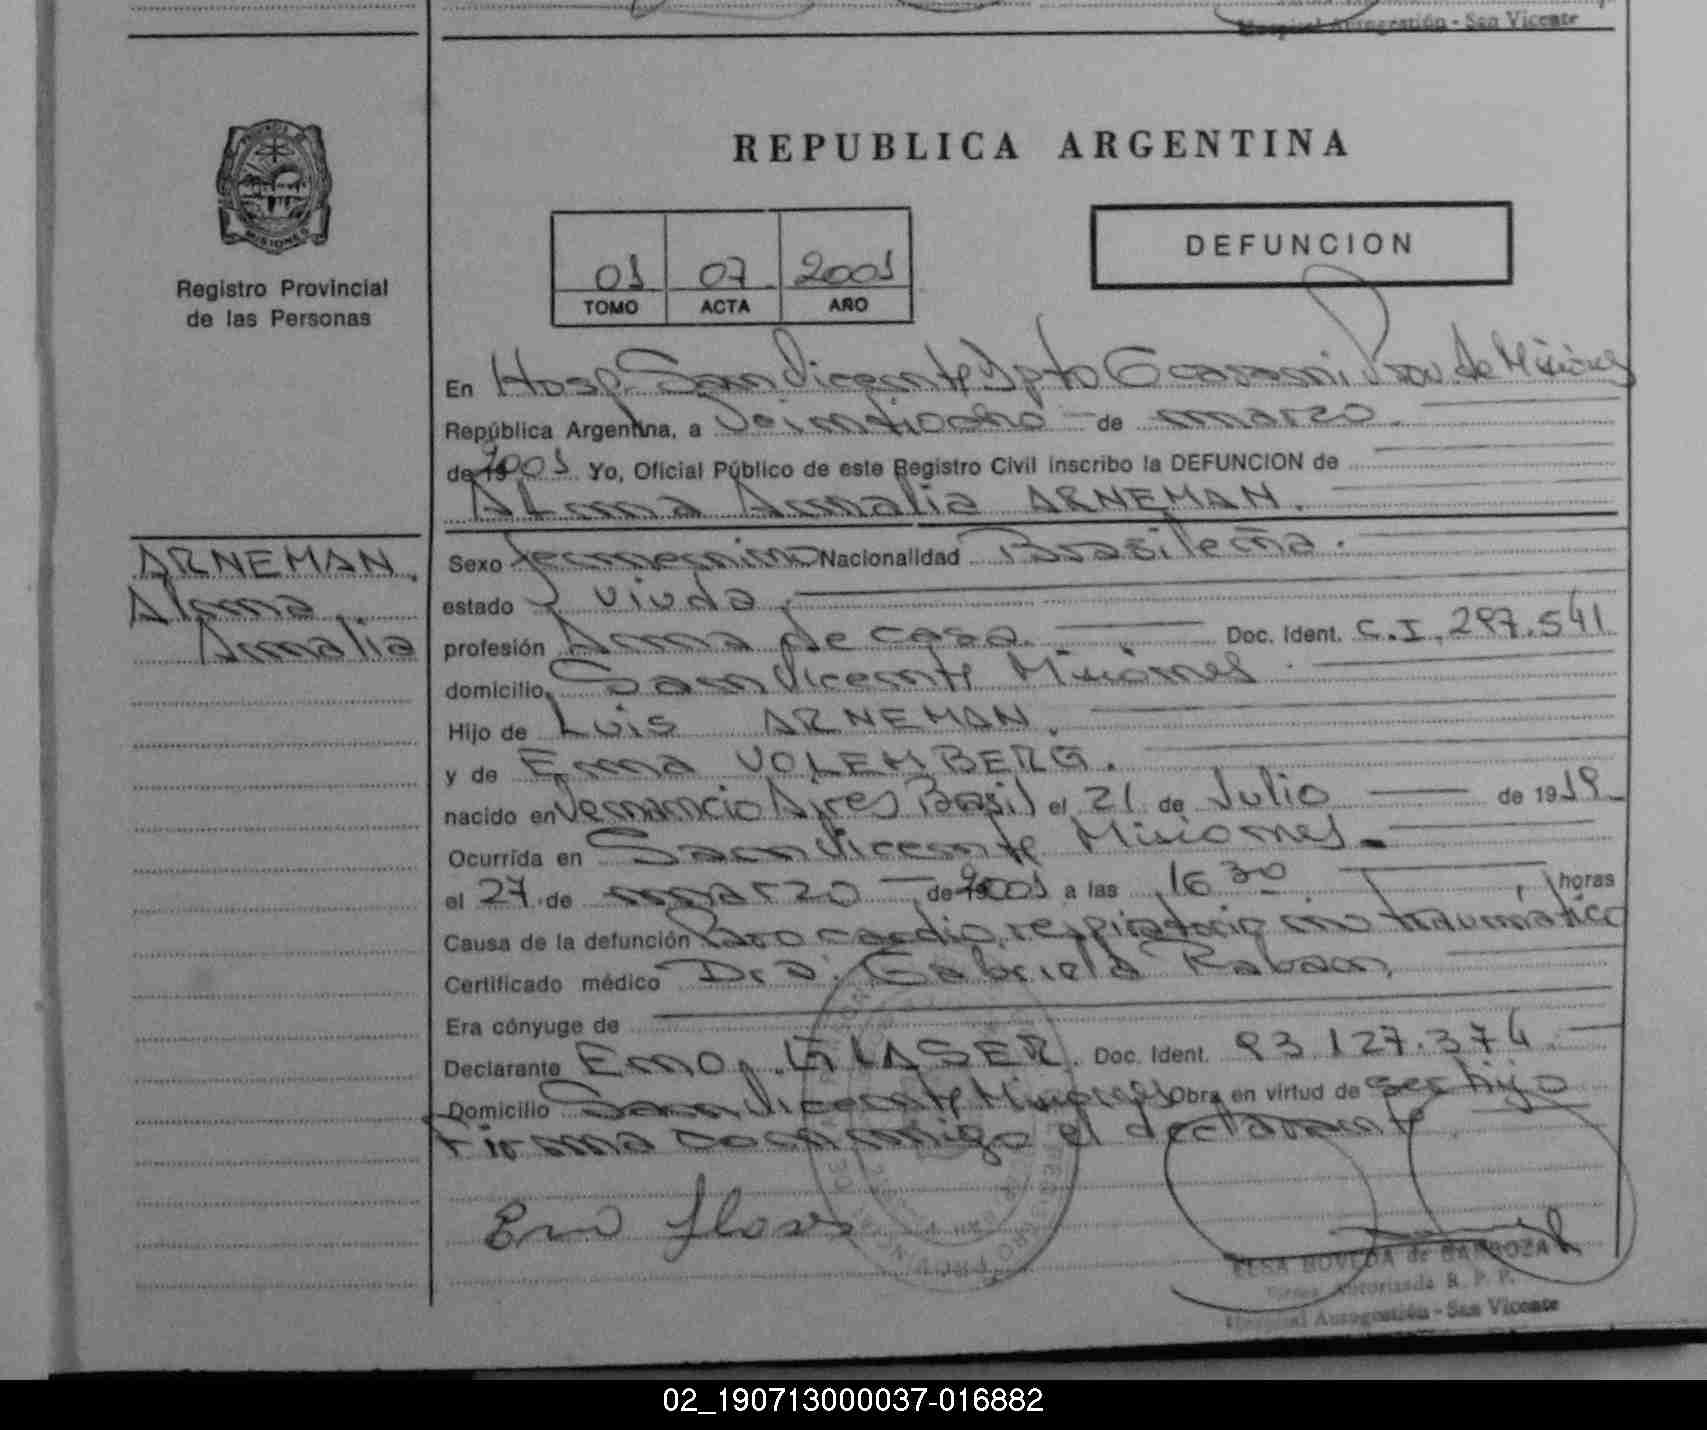 Hospital Autogestión - San Vicente
REPUBLICA ARGENTINA
PROVINCIA DE
MISIONES
Registro Provincial
de las Personas
01 07 2001
TOMO ACTA AÑO
DEFUNCION
En Hosp. San Vicente Dpto Guarani Prov. de Misiones
República Argentina, a Veintiocho de marzo
de 2001 Yo, Oficial Público de este Registro Civil inscribo la DEFUNCION de
Alma Amalia ARNEMAN.
ARNEMAN,
Alma
Amalia
Sexo femenino Nacionalidad Brasileña.
estado viuda
profesión Ama de casa. Doc. Ident. C.I. 297.541
domicilio San Vicente Misiones
Hijo de Luis ARNEMAN.
y de Ema VOLEMBERG.
nacido en Venancio Aires Basil el 21 de Julio de 1919
Ocurrida en San Vicente Misiones
el 27 de marzo de 2001 a las 16 30 horas
Causa de la defunción Paro cardio respiratorio no traumático
Certificado médico Dra. Gabriela Raban
Era cónyuge de
Declarante Erno GLASER. Doc. Ident. 93.127.374
Domicilio San Vicente Misiones Obra en virtud de ser hijo
Firma conmigo el declarante
ELSA BOVEDA de BARBOZA
Firma Autorizada R. P. P.
Hospital Autogestión - San Vicente
02_190713000037-016882